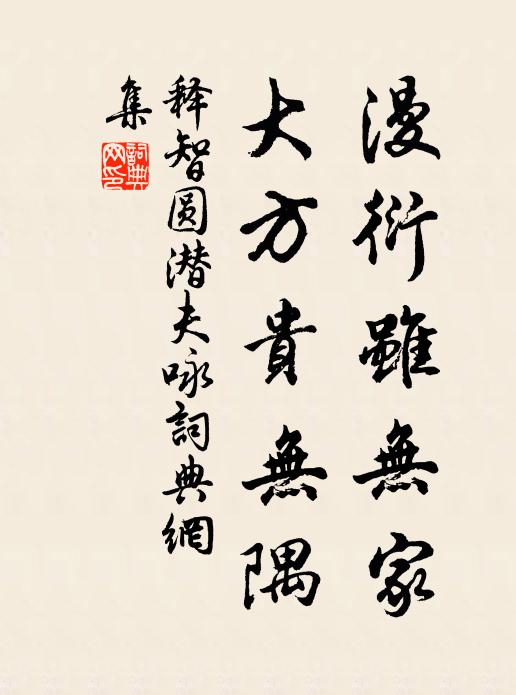 漫衍雖無家
大方貴無隅
释智圆潜夫咏詞典網
集
詞典網印